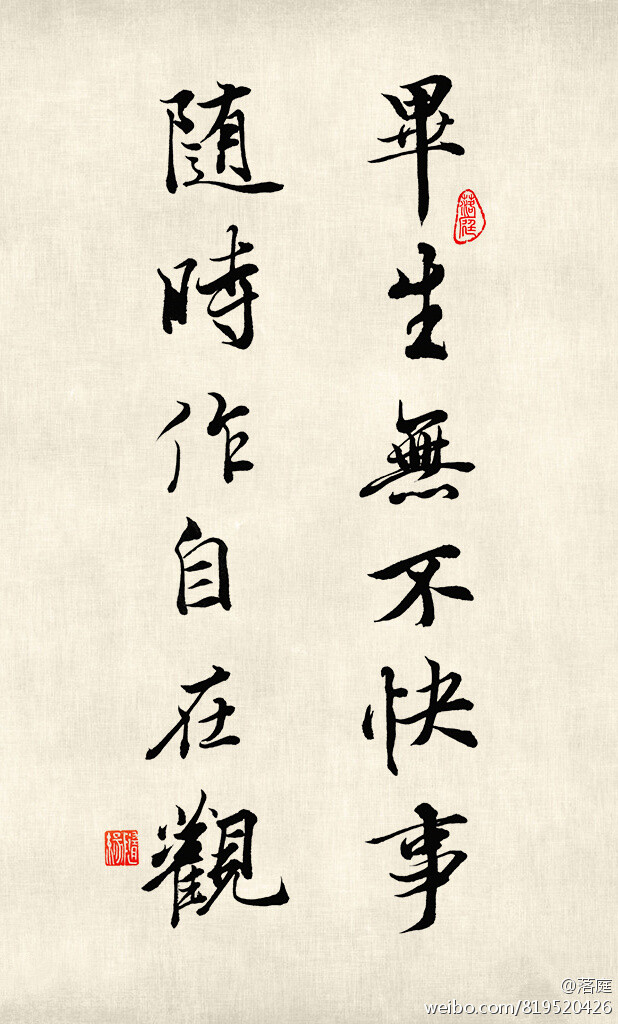 畢生無不快事
随時作自在觀
落庭
随緣
@落庭
weibo.com/819520426